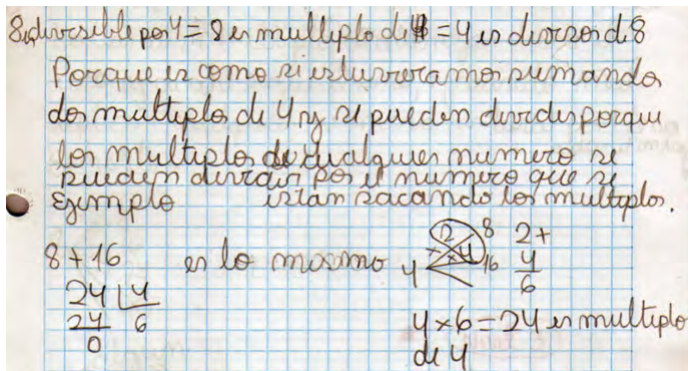 8 es divisible por 4 = 8 es multiplo de 4 = 4 es divisor de 8
Porque es como si estuvieramos sumando
dos multiplos de 4 y si pueden dividir porque
los multiplos de cualquier numero se
pueden dividir por el numero que se
Ejemplo están sacando los multiplos.
8 + 16 es lo mismo 4 2 8 2+
×4 16 4
24 4 6
24 6 4 × 6 = 24 es multiplo
0 de 4